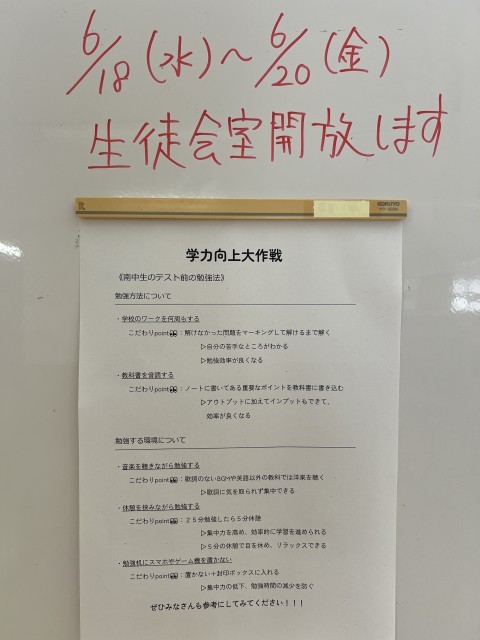 6/18(水)～6/20(金)
生徒会室開放します
KOKUYO
学力向上大作戦
《南中生のテスト前の勉強法》
勉強方法について
・学校のワークを何周もする
こだわりpoint👀：解けなかった問題をマーキングして解けるまで解く
▷自分の苦手なところがわかる
▷勉強効率が良くなる
・教科書を音読する
こだわりpoint👀：ノートに書いてある重要なポイントを教科書に書き込む
▷アウトプットに加えてインプットもできて、
効率が良くなる
勉強する環境について
・音楽を聴きながら勉強する
こだわりpoint👀：歌詞のないBGMや英語以外の教科では洋楽を聴く
▷歌詞に気を取られず集中できる
・休憩を挟みながら勉強する
こだわりpoint👀：２５分勉強したら５分休憩
▷集中力を高め、効率的に学習を進められる
▷５分の休憩で目を休め、リラックスできる
・勉強机にスマホやゲーム機を置かない
こだわりpoint👀：置かない＋封印ボックスに入れる
▷集中力の低下、勉強時間の減少を防ぐ
ぜひみなさんも参考にしてみてください！！！